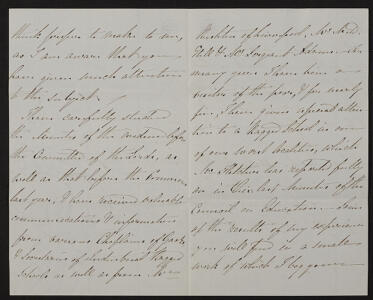 think proper to make to me,
as I am aware that you
have given much attention
to this subject.
I have carefully studied
the Minutes of the evidence before
the Committee of the Lords, as
well as that before the Commons
last year, & have received valuable
communications & information
from various Chaplains of Gaols
& Secretaries of and Ragged
Schools as well as from Mr
of Liverpool, Mr M.D.
Hill & Mr Sergeant Adams. For
many years I have been a
of the poor, & for nearly
five, I have given especial atten-
tion to a Ragged School in one
of our worst localities, which
Mr Fletcher has reported fully
on in the last Minutes of the
Council on Education. Some
of the results of my experience
you will find in a small
work of which I beg your